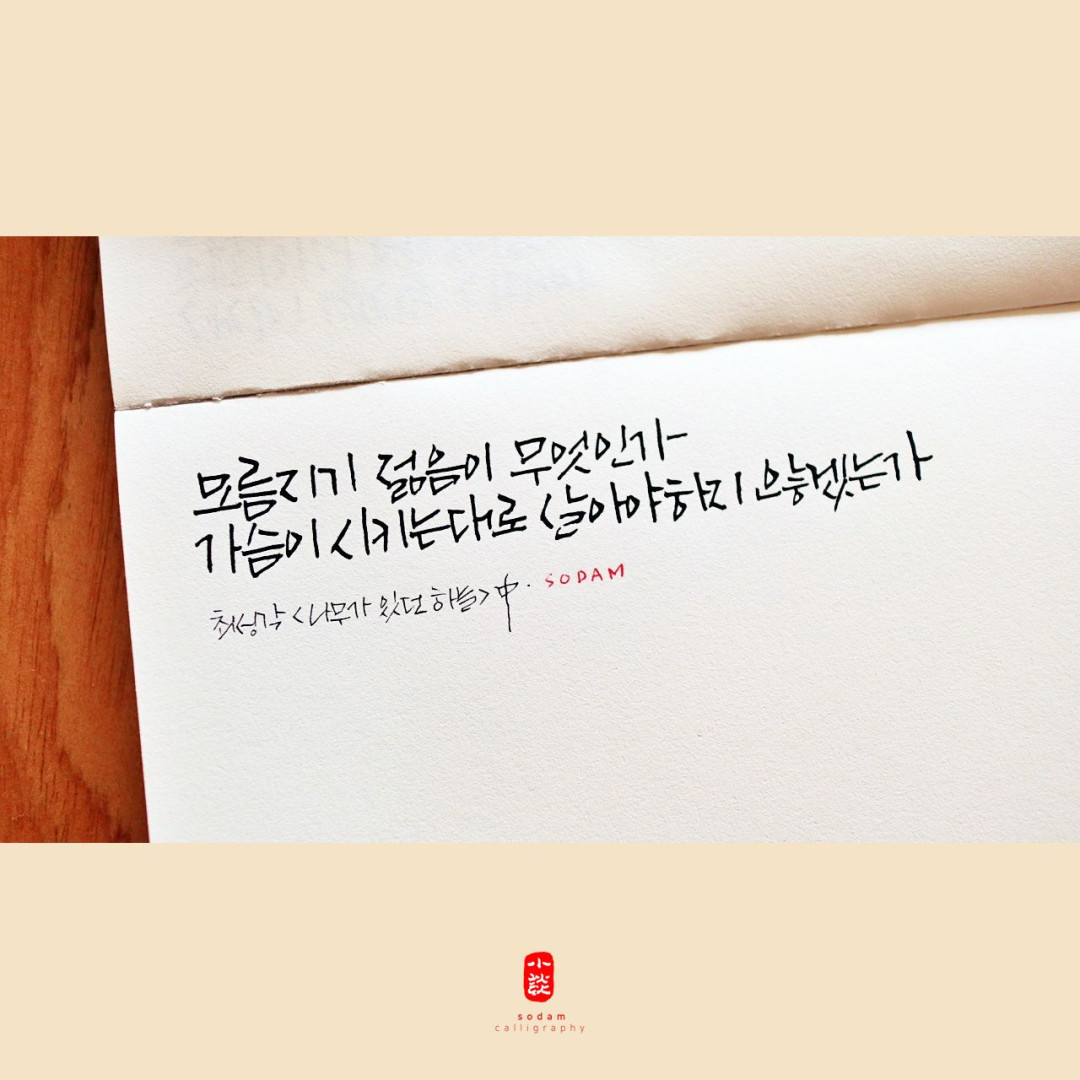 모름지기 젊음이 무엇인가
가슴이 시키는대로 살아야하지 않겠는가
최성각 <나무가 있던 하늘> 中. SODAM
小談
sodam
calligraphy